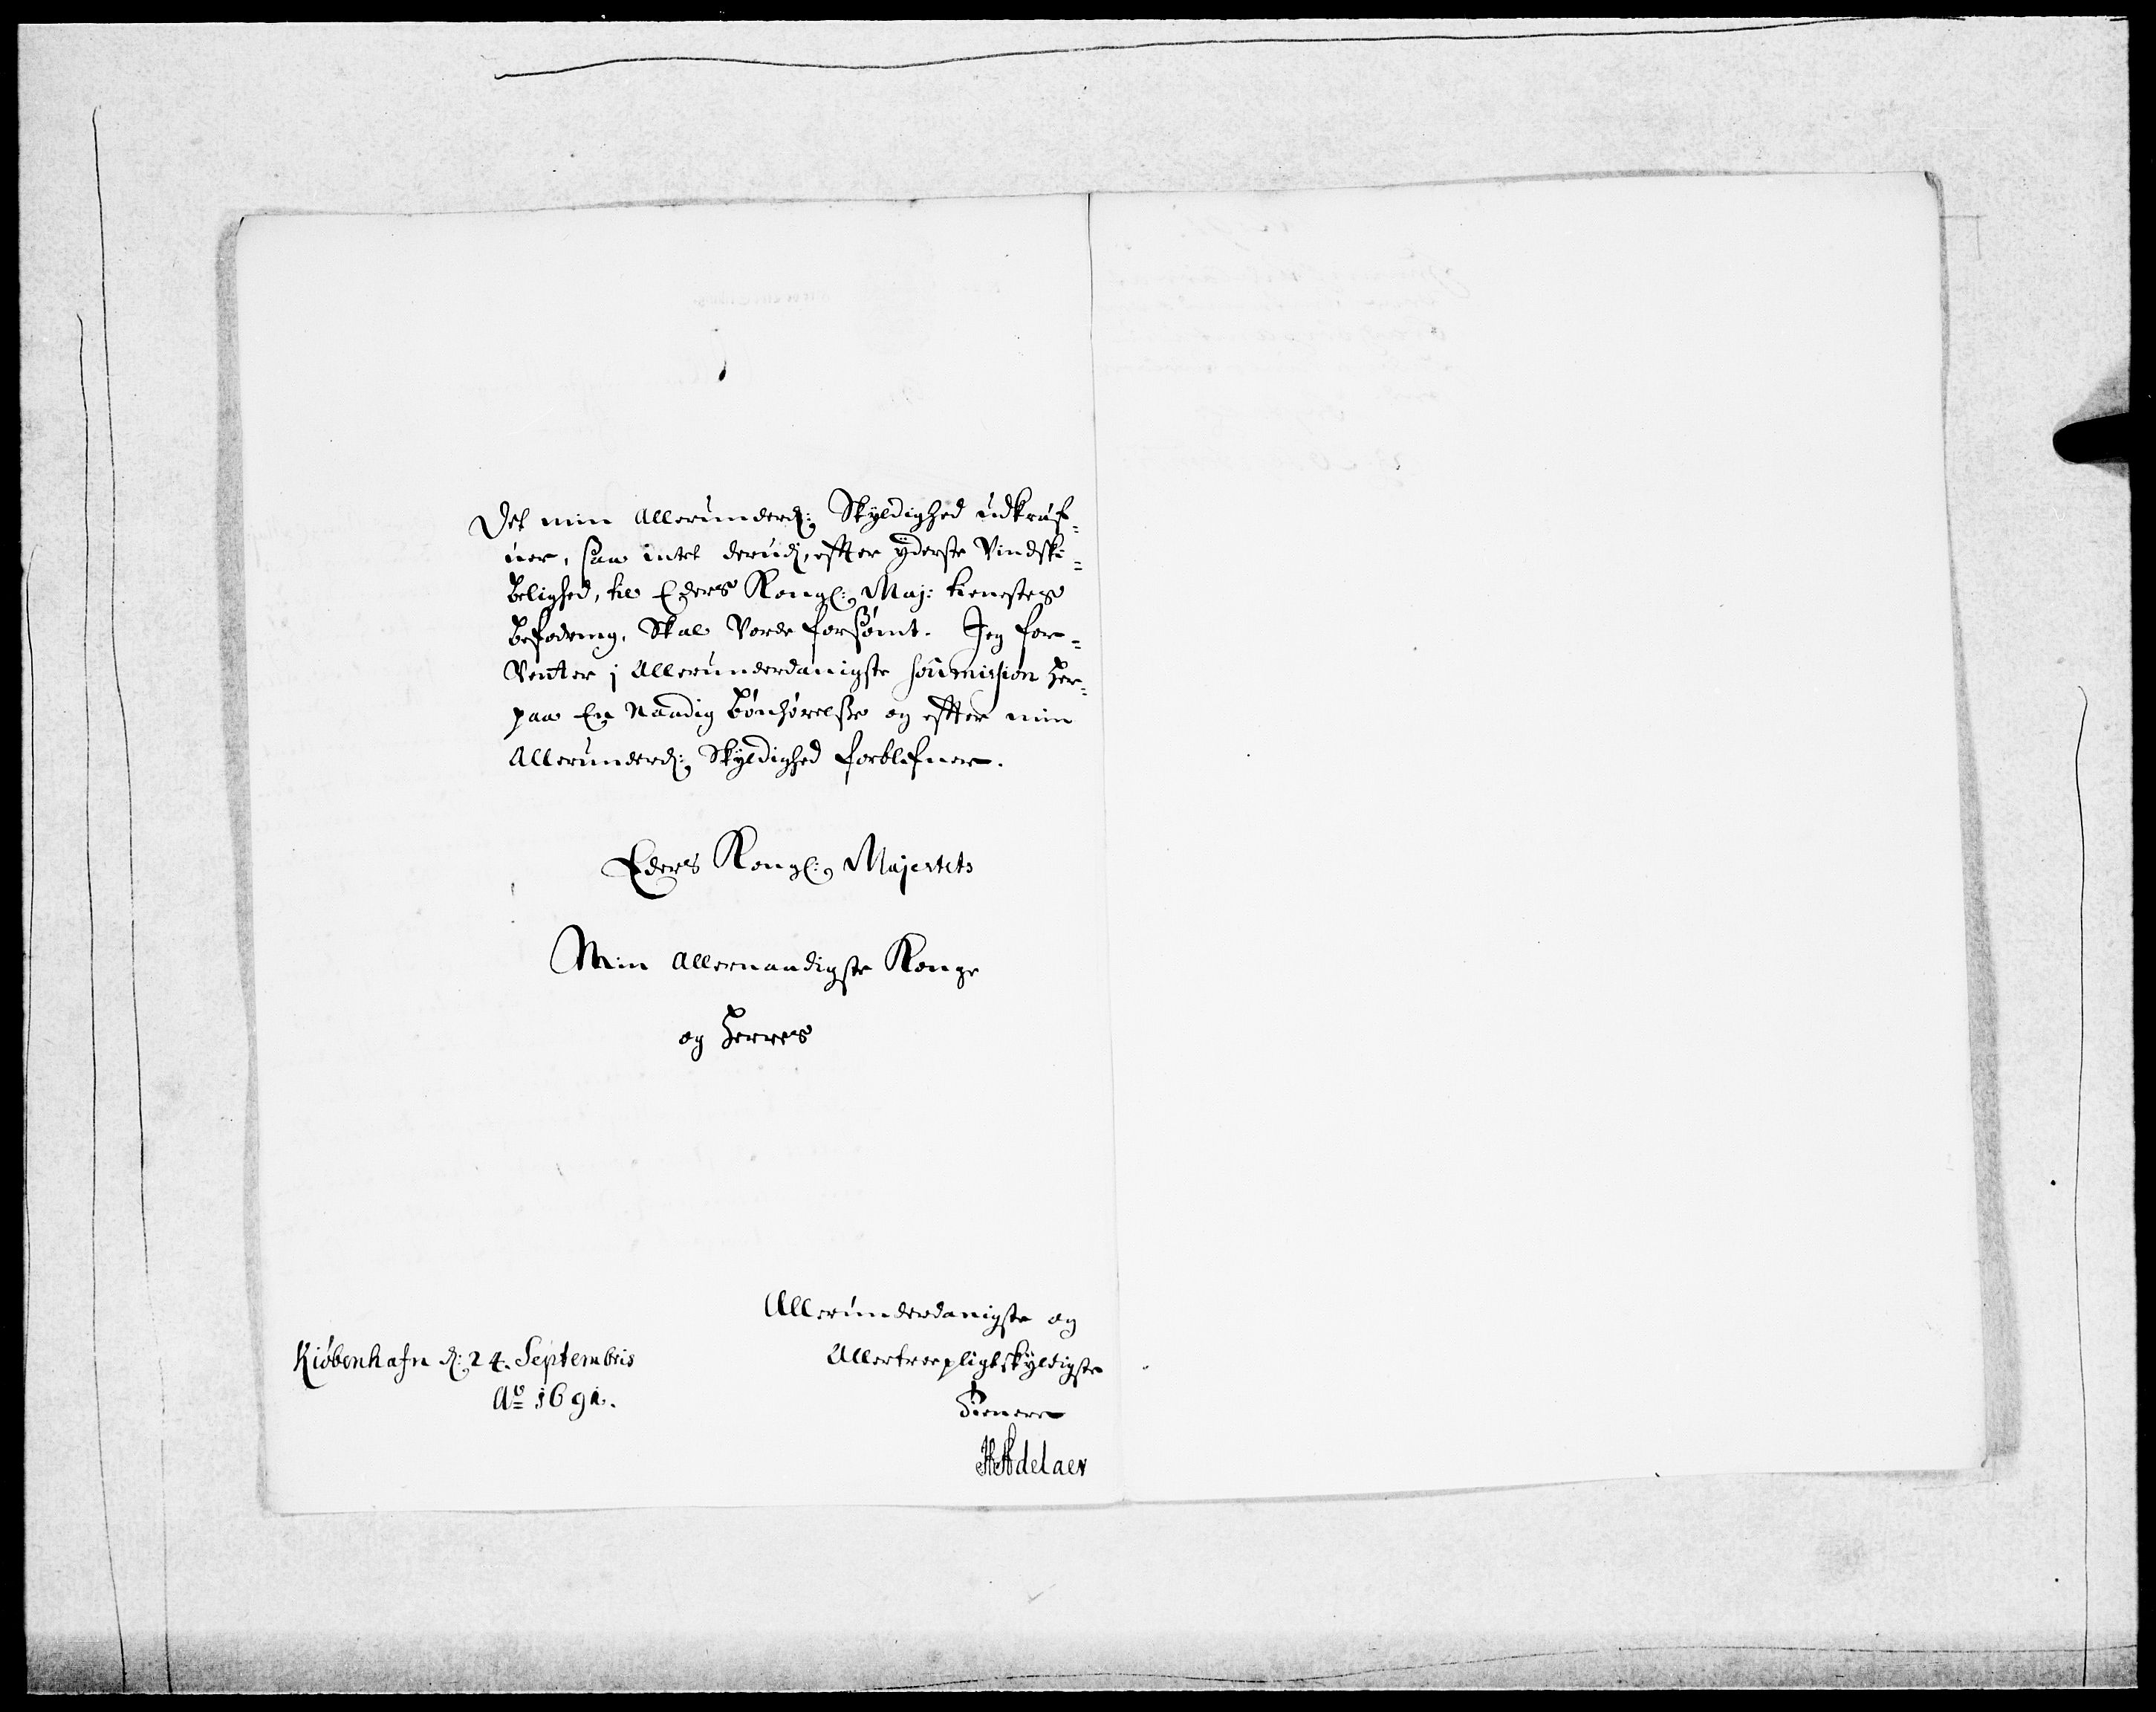 Det min Allerunderd: Skyldighed udkræf=
uer, saa intet derudj, effter yderste Vindski=
belighed, til Eders Kongl: Maj: tienestes
befodring, Skal Vorde forsømt. Jeg for=
Venter j Allerunderdanigste soumission her=
paa En Naadig bønhørelse og effter min
Allerunderd: Skyldighed forblifuer.
Eders Kongl: Majestets
Min Allernaadigste Konge
og Herres
Allerunderdanigste og
Allertroepligtskyldigste
Tienere
HAdelaer
Kiøbenhafn d: 24. Septembris
Ao 1691.